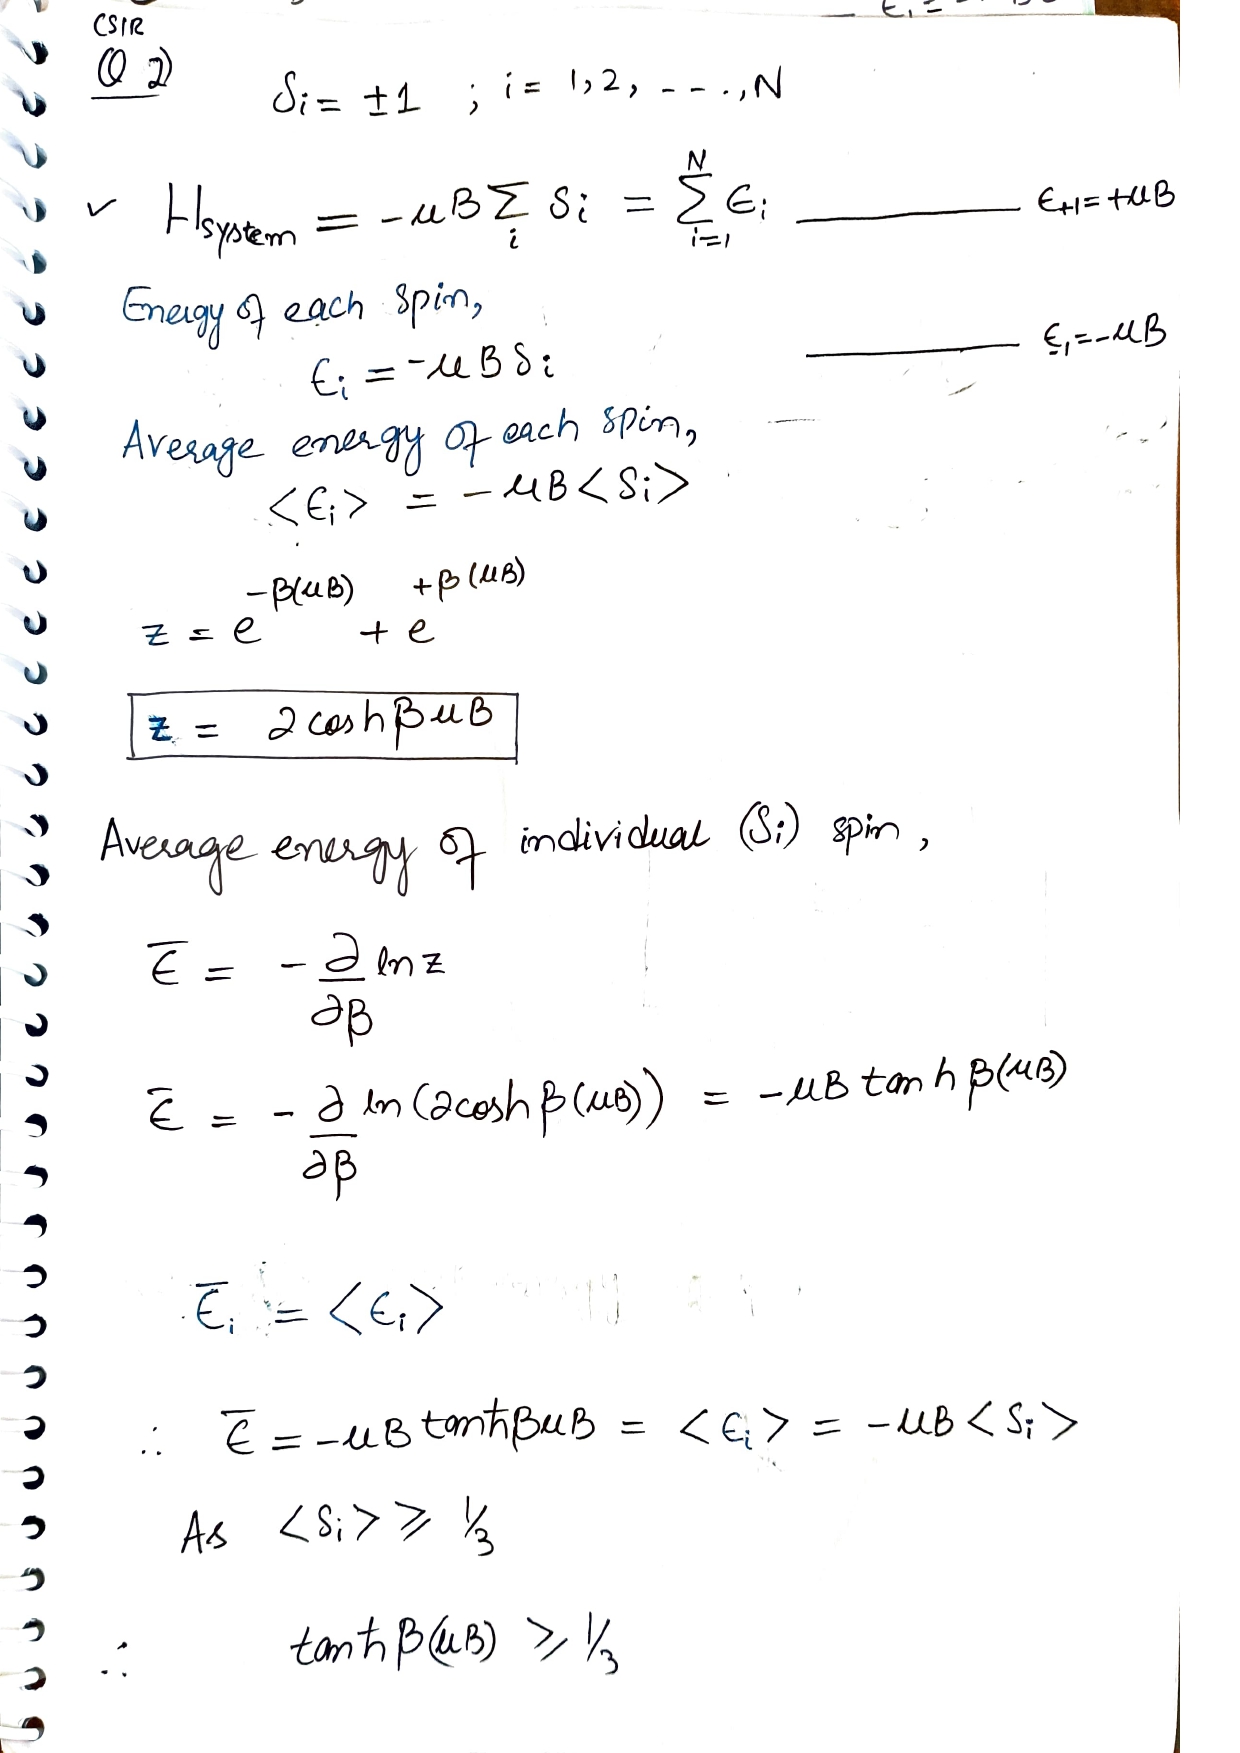 CSIR
Q 2)
Si = ±1 ; i = 1,2, ---.,N
✓ Hsystem = -μB Σ_i Si = Σ_{i=1}^{N} ϵi
ϵ+1 = +μB
Energy of each spin,
ϵ1 = -μB
ϵi = -μB Si
Average energy of each spin,
<ϵi> = -μB<Si>
z = e^{-β(μB)} + e^{+β(μB)}
z = 2 cosh βμB
Average energy of individual (Si) spin,
ϵ̄ = -∂/∂β ln z
ϵ̄ = -∂/∂β ln (2cosh β(μB)) = -μB tanh β(μB)
ϵ̄i = <ϵi>
∴ ϵ̄ = -μB tanh βμB = <ϵi> = -μB <Si>
As <Si> ⩾ 1/3
∴ tanh β(μB) ⩾ 1/3